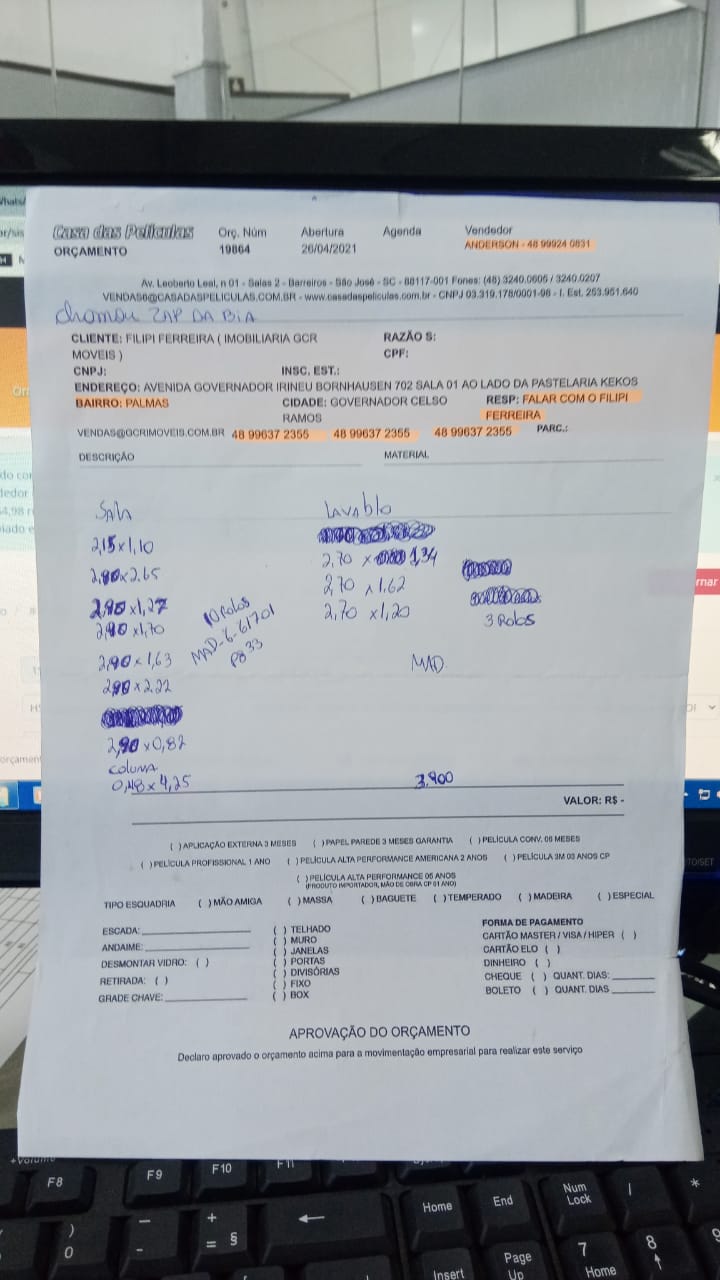 Casa das Películas Orç. Núm Abertura Agenda Vendedor
ORÇAMENTO 19864 26/04/2021 ANDERSON - 48 99924 0831
Av. Leoberto Leal, n 01 - Salas 2 - Barreiros - São José - SC - 88117-001 Fones: (48) 3240.0606 / 3240.0207
VENDAS6@CASADASPELICULAS.COM.BR - www.casadaspeliculas.com.br - CNPJ 03.319.178/0001-96 - I. Est. 253.951.640
chamou ZAP DA BIA
CLIENTE: FILIPI FERREIRA ( IMOBILIARIA GCR RAZÃO S:
MOVEIS ) CPF:
CNPJ: INSC, EST.:
ENDEREÇO: AVENIDA GOVERNADOR IRINEU BORNHAUSEN 702 SALA 01 AO LADO DA PASTELARIA KEKOS
BAIRRO: PALMAS CIDADE: GOVERNADOR CELSO RESP: FALAR COM O FILIPI
RAMOS FERREIRA
VENDAS@GCRIMOVEIS.COM.BR 48 99637 2355 48 99637 2355 48 99637 2355 PARC.:
DESCRIÇÃO MATERIAL
SALA LAVABIO
2,15x1,10 2,70 x 1,34
2,90x2,65 2,70 x 1.62
2,90x1,27 2,70 x1,20 3 Rolos
2,90x1,70 10 Rolos
2,90x1,63 MAD-6-61701
2,90x2,22 P833
MAD
2,90x0,82
COLUNA
0,48x4,25 3.900
VALOR: R$ -
( ) APLICAÇÃO EXTERNA 3 MESES ( ) PAPEL PAREDE 3 MESES GARANTIA ( ) PELÍCULA CONV. 06 MESES
( ) PELÍCULA PROFISSIONAL 1 ANO ( ) PELÍCULA ALTA PERFORMANCE AMERICANA 2 ANOS ( ) PELÍCULA 3M 03 ANOS CP
( ) PELÍCULA ALTA PERFORMANCE 05 ANOS
(PRODUTO IMPORTADOR, MÃO DE OBRA CP 01 ANO)
TIPO ESQUADRIA ( ) MÃO AMIGA ( ) MASSA ( ) BAGUETE ( ) TEMPERADO ( ) MADEIRA ( ) ESPECIAL
ESCADA: ( ) TELHADO FORMA DE PAGAMENTO
ANDAIME: ( ) MURO CARTÃO MASTER / VISA / HIPER ( )
DESMONTAR VIDRO: ( ) ( ) JANELAS CARTÃO ELO ( )
RETIRADA: ( ) ( ) PORTAS DINHEIRO ( )
GRADE CHAVE: ( ) DIVISÓRIAS CHEQUE ( ) QUANT. DIAS:
( ) FIXO BOLETO ( ) QUANT. DIAS
( ) BOX
APROVAÇÃO DO ORÇAMENTO
Declaro aprovado o orçamento acima para a movimentação empresarial para realizar este serviço
F8 F9 F10 F11
Home End Num Lock / *
) 0 - + = § 7 Home 8 9
Insert Page Up